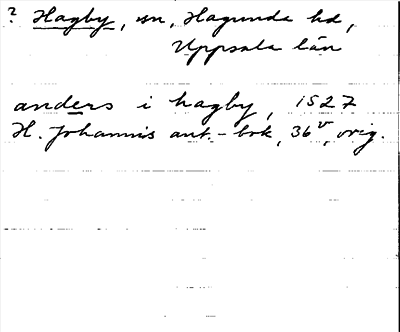 ? Hagby, sn, Hagunda hd,
Uppsala län
anders i hagby, 1527
H. Johannis ant.-bok, 36v, orig.